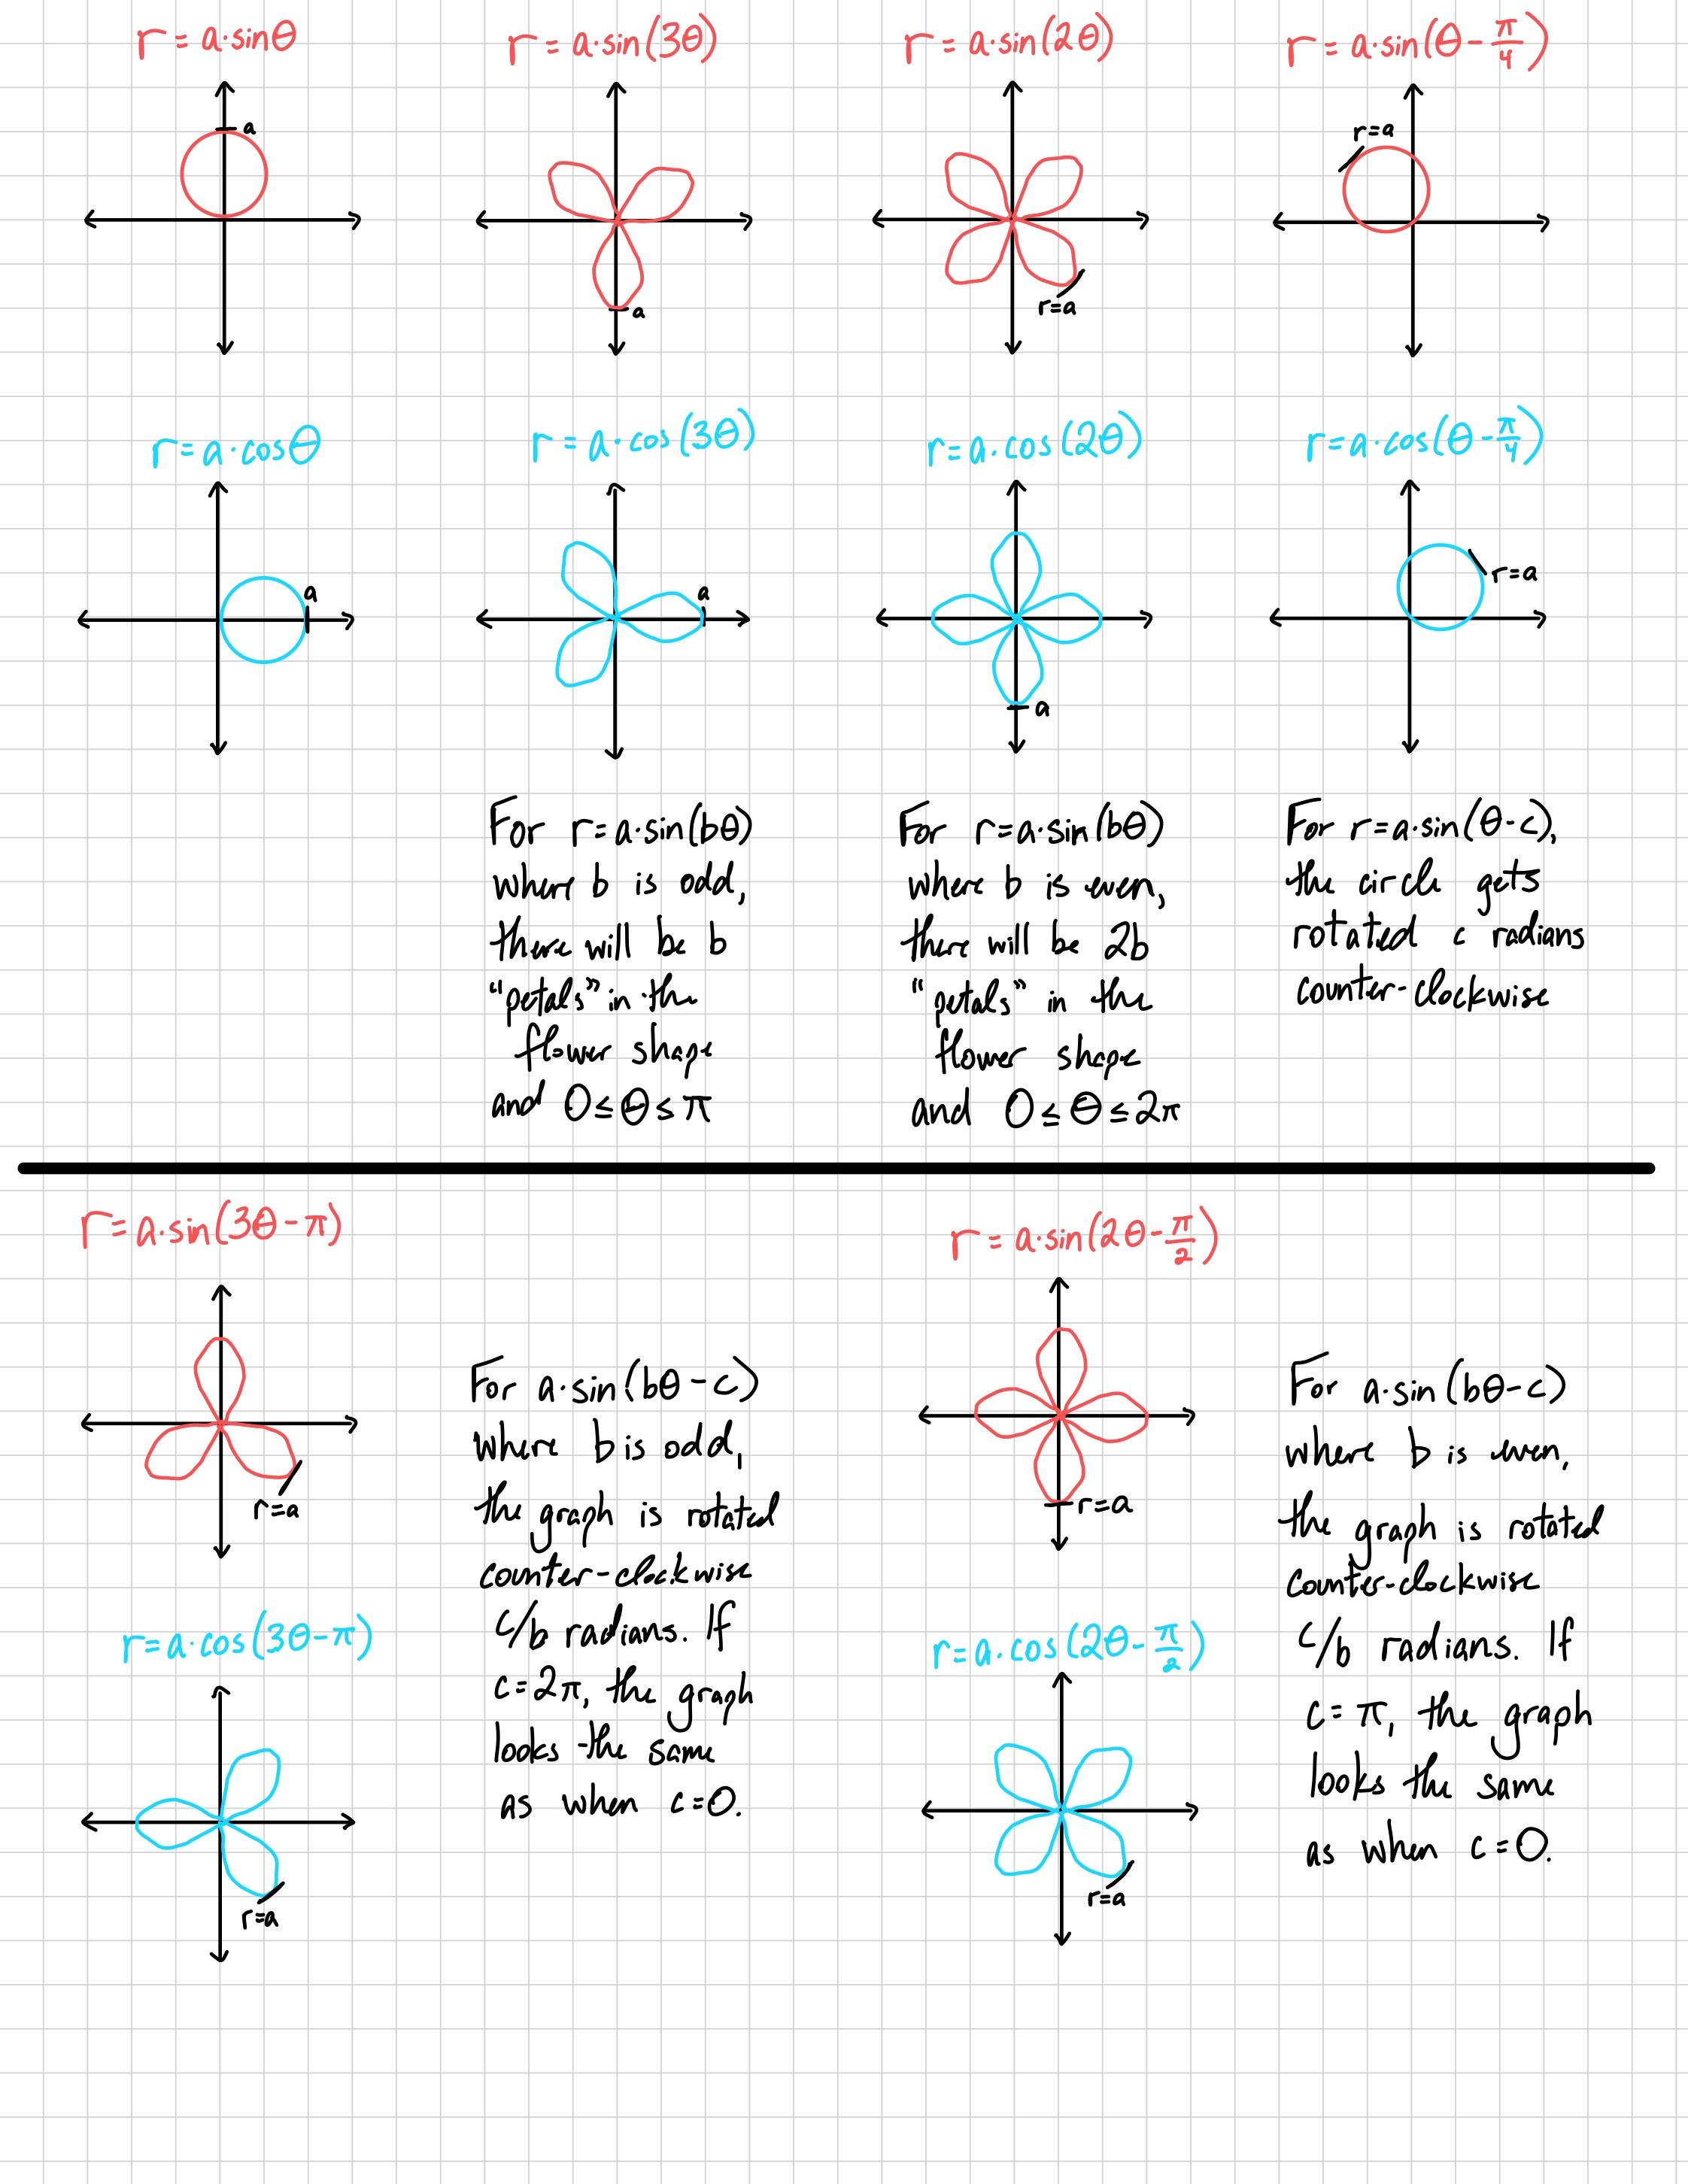 r = a·sinθ
r = a·sin(3θ)
r = a·sin(2θ)
r = a·sin(θ - π/4)
a
a
r=a
r=a
r=a·cosθ
r = a·cos(3θ)
r=a·cos(2θ)
r=a·cos(θ-π/4)
a
a
a
r=a
For r=a·sin(bθ)
where b is odd,
there will be b
"petals" in the
flower shape
and 0≤θ≤π
For r=a·sin(bθ)
where b is even,
there will be 2b
"petals" in the
flower shape
and 0≤θ≤2π
For r=a·sin(θ-c),
the circle gets
rotated c radians
counter-clockwise
r=a·sin(3θ-π)
r=a
r=a·cos(3θ-π)
r=a
For a·sin(bθ-c)
where b is odd,
the graph is rotated
counter-clockwise
c/b radians. If
c=2π, the graph
looks the same
as when c=0.
r = a·sin(2θ-π/2)
r=a
r=a·cos(2θ-π/2)
r=a
For a·sin(bθ-c)
where b is even,
the graph is rotated
counter-clockwise
c/b radians. If
c=π, the graph
looks the same
as when c=0.